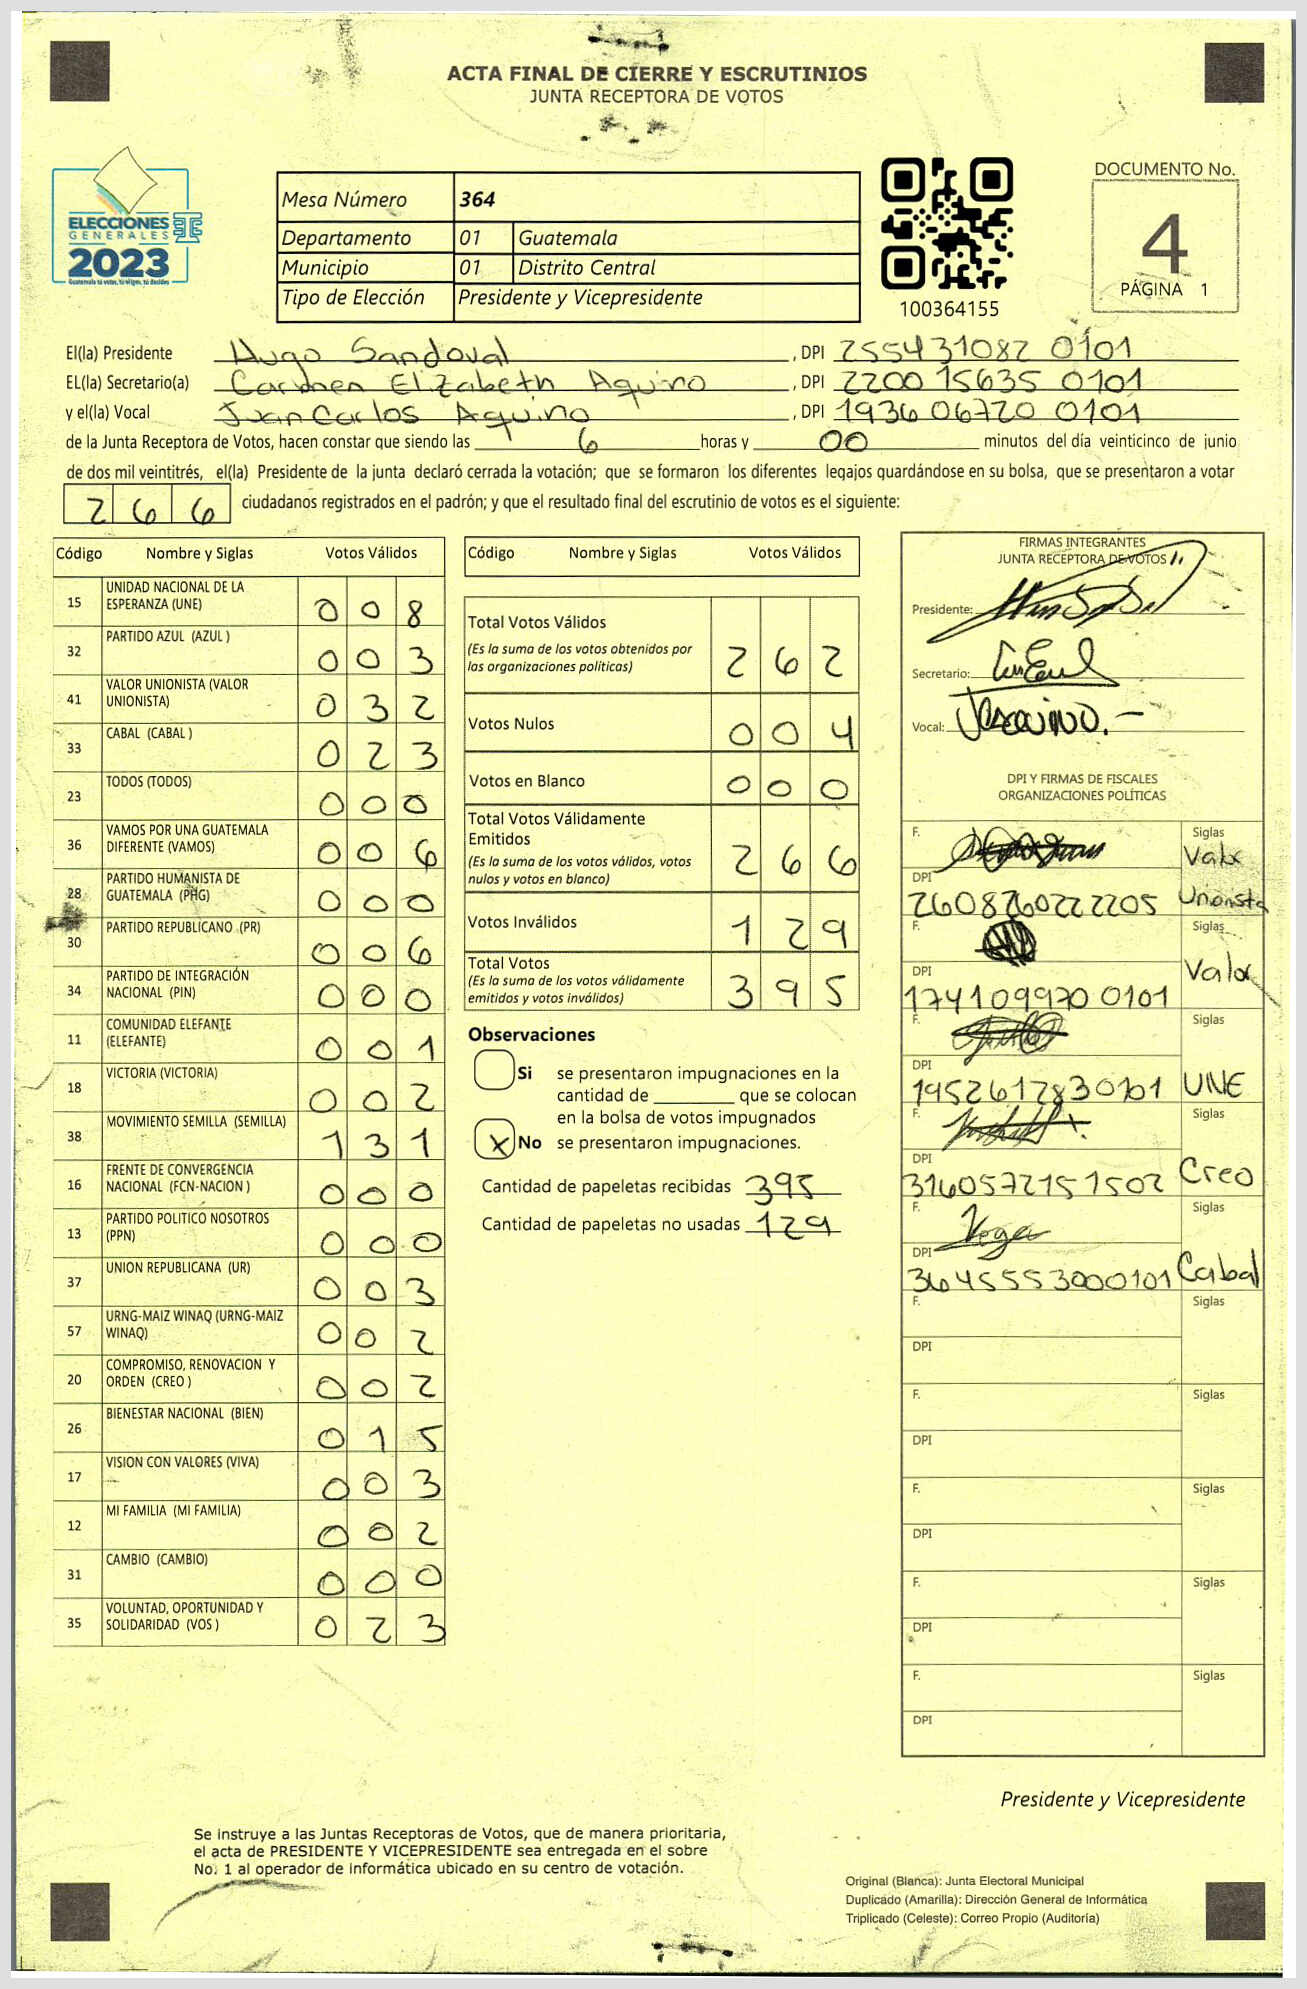 ACTA FINAL DE CIERRE Y ESCRUTINIOS
JUNTA RECEPTORA DE VOTOS
ELECCIONES
GENERALES
2023
Guatemala tú votas, tú eliges, tú decides
Mesa Número 364
Departamento 01 Guatemala
Municipio 01 Distrito Central
Tipo de Elección Presidente y Vicepresidente
100364155
DOCUMENTO No.
4
PÁGINA 1
El(la) Presidente Hugo Sandoval , DPI 255431082 0101
EL(la) Secretario(a) Carmen Elizabeth Aquino , DPI 2200 15635 0101
y el(la) Vocal Juan Carlos Aquino , DPI 1936 06720 0101
de la Junta Receptora de Votos, hacen constar que siendo las 6 horas y 00 minutos del día veinticinco de junio
de dos mil veintitrés, el(la) Presidente de la junta declaró cerrada la votación; que se formaron los diferentes legajos quardándose en su bolsa, que se presentaron a votar
266 ciudadanos registrados en el padrón; y que el resultado final del escrutinio de votos es el siguiente:
Código Nombre y Siglas Votos Válidos
15 UNIDAD NACIONAL DE LA ESPERANZA (UNE) 0 0 8
32 PARTIDO AZUL (AZUL ) 0 0 3
41 VALOR UNIONISTA (VALOR UNIONISTA) 0 3 2
33 CABAL (CABAL ) 0 2 3
23 TODOS (TODOS) 0 0 0
36 VAMOS POR UNA GUATEMALA DIFERENTE (VAMOS) 0 0 6
28 PARTIDO HUMANISTA DE GUATEMALA (PHG) 0 0 0
30 PARTIDO REPUBLICANO (PR) 0 0 6
34 PARTIDO DE INTEGRACIÓN NACIONAL (PIN) 0 0 0
11 COMUNIDAD ELEFANTE (ELEFANTE) 0 0 1
18 VICTORIA (VICTORIA) 0 0 2
38 MOVIMIENTO SEMILLA (SEMILLA) 1 3 1
16 FRENTE DE CONVERGENCIA NACIONAL (FCN-NACION ) 0 0 0
13 PARTIDO POLITICO NOSOTROS (PPN) 0 0 0
37 UNION REPUBLICANA (UR) 0 0 3
57 URNG-MAIZ WINAQ (URNG-MAIZ WINAQ) 0 0 2
20 COMPROMISO, RENOVACION Y ORDEN (CREO ) 0 0 2
26 BIENESTAR NACIONAL (BIEN) 0 1 5
17 VISION CON VALORES (VIVA) 0 0 3
12 MI FAMILIA (MI FAMILIA) 0 0 2
31 CAMBIO (CAMBIO) 0 0 0
35 VOLUNTAD, OPORTUNIDAD Y SOLIDARIDAD (VOS ) 0 2 3
Código Nombre y Siglas Votos Válidos
Total Votos Válidos 2 6 2
(Es la suma de los votos obtenidos por
las organizaciones políticas)
Votos Nulos 0 0 4
Votos en Blanco 0 0 0
Total Votos Válidamente
Emitidos 2 6 6
(Es la suma de los votos válidos, votos
nulos y votos en blanco)
Votos Inválidos 1 2 9
Total Votos 3 9 5
(Es la suma de los votos válidamente
emitidos y votos inválidos)
Observaciones
Si se presentaron impugnaciones en la
cantidad de ________ que se colocan
en la bolsa de votos impugnados
X No se presentaron impugnaciones.
Cantidad de papeletas recibidas 395
Cantidad de papeletas no usadas 129
FIRMAS INTEGRANTES
JUNTA RECEPTORA DE VOTOS
Presidente:
Secretario:
Vocal: JCAQUINO.-
DPI Y FIRMAS DE FISCALES
ORGANIZACIONES POLÍTICAS
F. Siglas Valor
DPI 2608260222205 Unionista
F. Siglas
DPI 174109970 0101 Valor
F. Siglas
DPI 1952617830101 UNE
F. Siglas
DPI 3160572151502 Creo
F. Vega Siglas
DPI 3645553000101 Cabal
F. Siglas
DPI
F. Siglas
DPI
F. Siglas
DPI
F. Siglas
DPI
F. Siglas
DPI
Presidente y Vicepresidente
Se instruye a las Juntas Receptoras de Votos, que de manera prioritaria,
el acta de PRESIDENTE Y VICEPRESIDENTE sea entregada en el sobre
No. 1 al operador de informática ubicado en su centro de votación.
Original (Blanca): Junta Electoral Municipal
Duplicado (Amarilla): Dirección General de Informática
Triplicado (Celeste): Correo Propio (Auditoría)